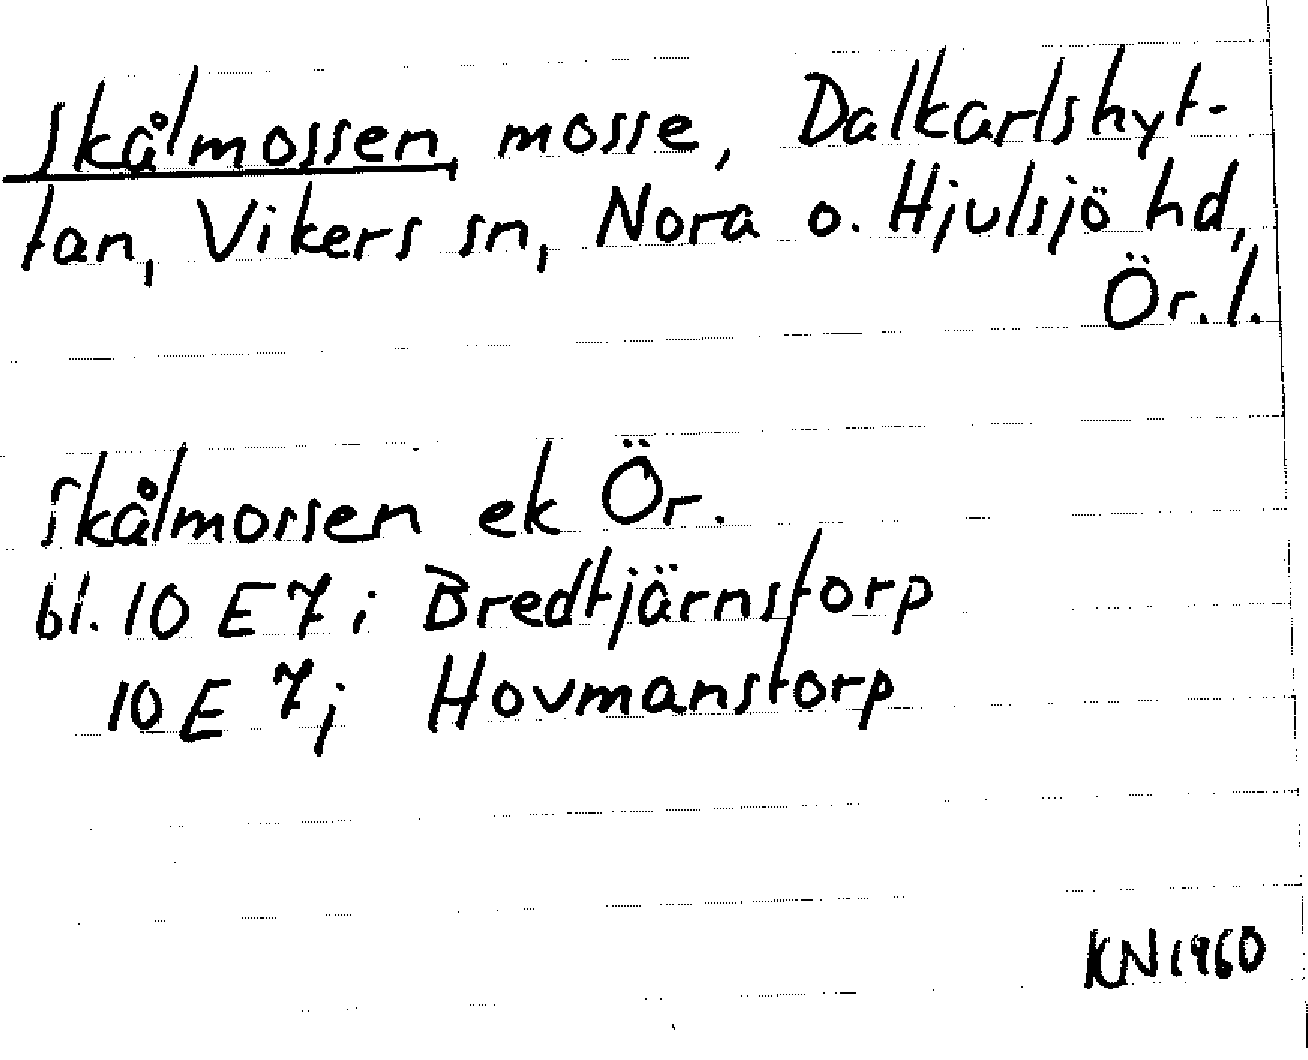 Skålmossen, mosse, Dalkarlshyt-
tan, Vikers sn, Nora o. Hjulsjö hd,
Ör. l.
Skålmossen ek Ör.
bl. 10 E 7 i Bredtjärnstorp
10 E 7 j Hovmanstorp
KN 1960